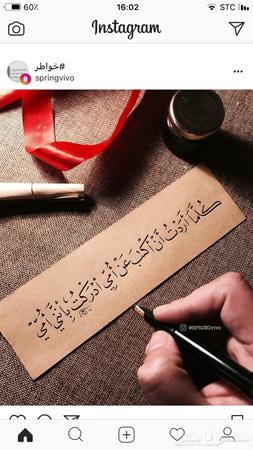 60%
16:02
STC
Instagram
#خواطر
springvivo
كلما أردت أن أكتب عن أمي أدركت بأنني أميّ